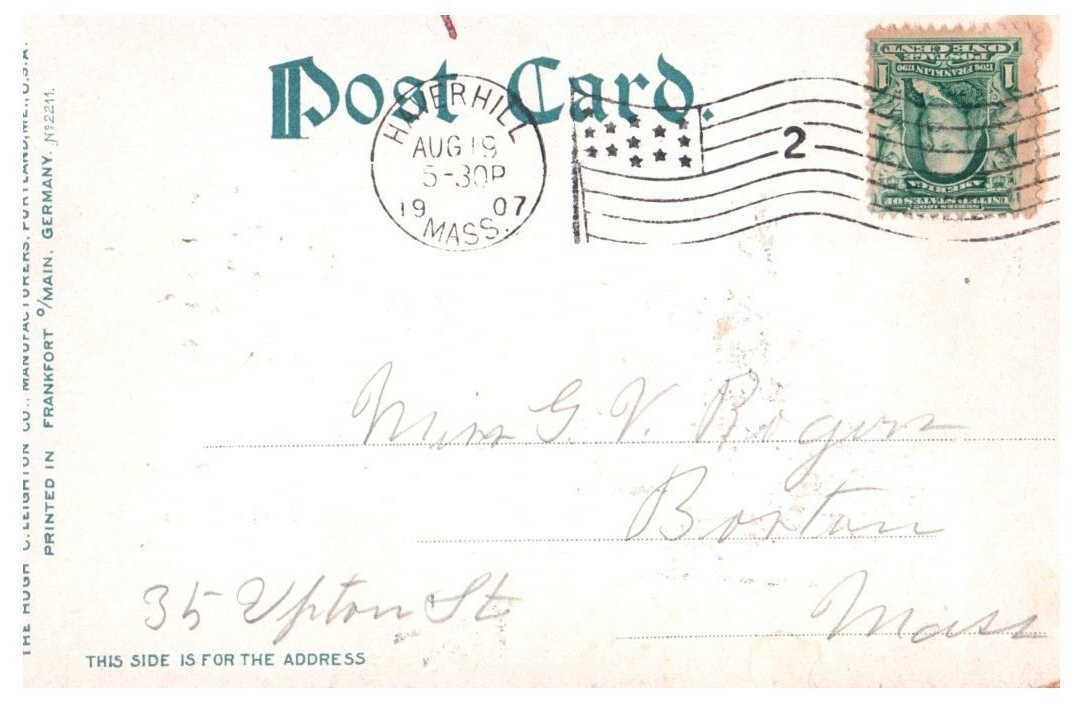 Post Card.
HAVERHILL
AUG 19
5-30P
1907
MASS.
2
SERIES 1902
UNITED STATES OF
AMERICA
1706 FRANKLIN 1790
POSTAGE
1 1
ONE CENT
Miss G. V. Rogers
Boston
35 Upton St
Mass
THIS SIDE IS FOR THE ADDRESS
THE HUGH C. LEIGHTON CO., MANUFACTURERS, PORTLAND, ME., U.S.A.
PRINTED IN FRANKFORT O/MAIN, GERMANY. No 2211.